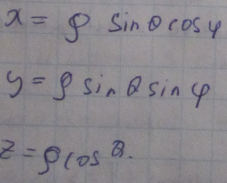 x = ρ sin θ cos φ
y = ρ sin θ sin φ
z = ρ cos θ.